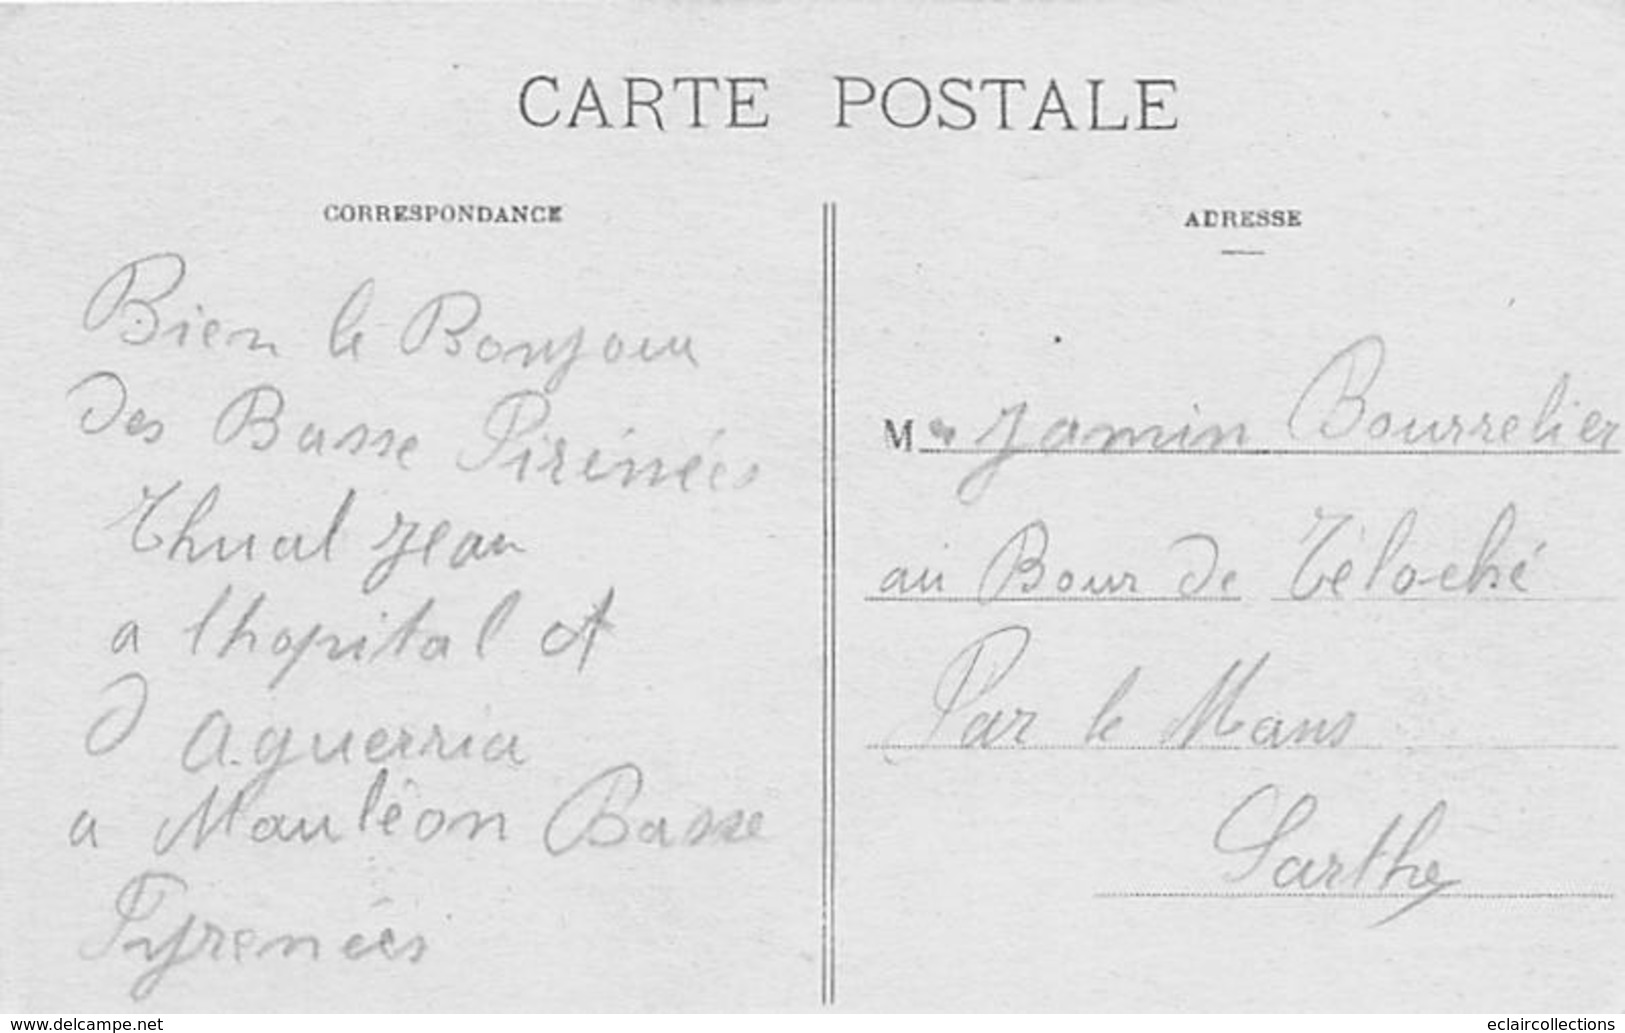 CARTE POSTALE
CORRESPONDANCE
Bien le Bonjour
des Basse Pirénées
Thual Jean
a lhopital A
D Aguerria
a Mauléon Basse
Pyrenées
ADRESSE
Mr Jamin Bourrelier
au Bour de Téloché
Par le Mans
Sarthe
www.delcampe.net
eclaircollections